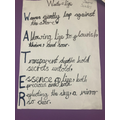 Water Life
Waves gently lap against
the shore
Allowing life to flourish
Transparent depths hold
secrets untold
Essence of life both
precious and bold
Reflecting the sky a mirror
so clear.